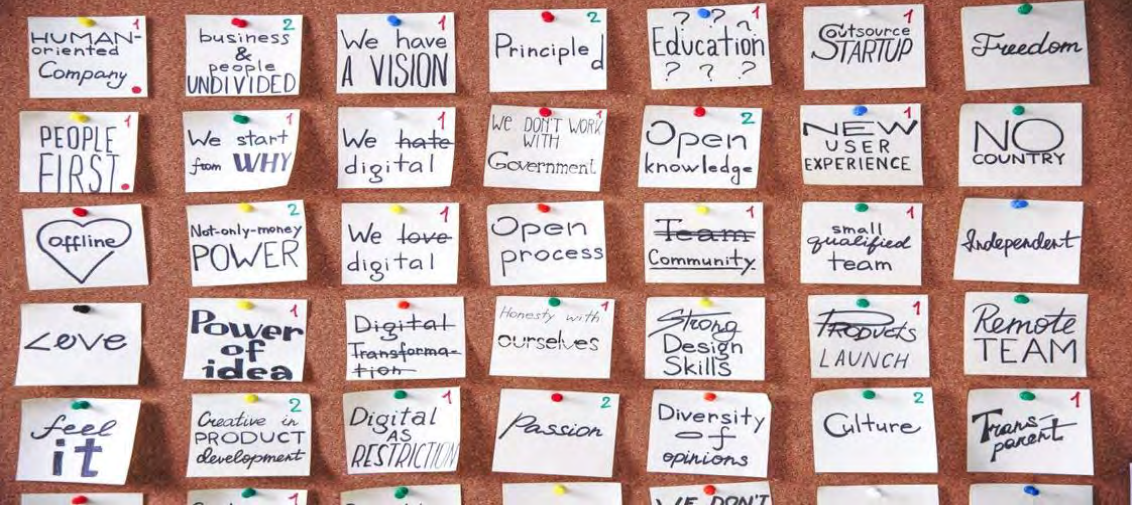 HUMAN-
oriented
Company
1
business
&
people
UNDIVIDED
2
We have
A VISION
1
Principled
2
? ? ?
Education
? ? ?
1
Outsource
STARTUP
1
Freedom
PEOPLE
FIRST.
1
We start
from WHY
1
We hate
digital
1
We DON'T WORK
WITH
Government
1
Open
knowledge
2
NEW
USER
EXPERIENCE
1
NO
COUNTRY
offline
Not-only-money
POWER
2
We love
digital
1
Open
process
Team
Community
1
small
qualified
team
1
Independent
Love
Power
of
idea
1
Digital
Transforma-
tion
Honesty with
ourselves
1
Strong
Design
Skills
Products
LAUNCH
1
Remote
TEAM
feel
it
Creative in
PRODUCT
development
2
Digital
AS
RESTRICTION
1
Passion
2
Diversity
of
opinions
Culture
2
Trans-
parent
1
1
1
WE DON'T